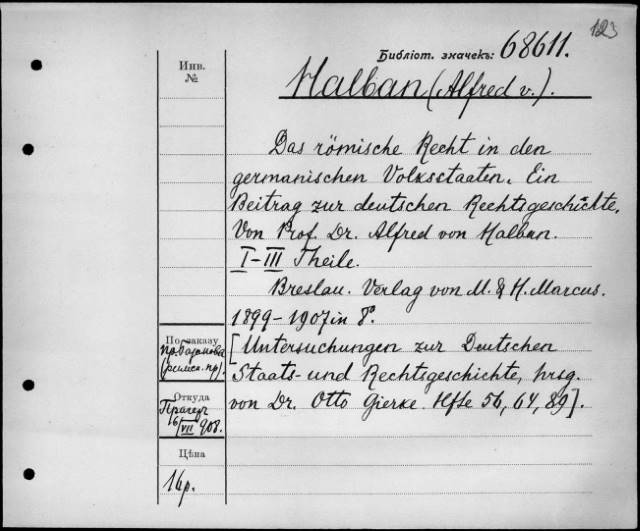 123
Библіот. значекъ: 68611.
Инв.
№
Halban (Alfred v.).
Das römische Recht in den
germanischen Volksstaaten. Ein
Beitrag zur deutschen Rechtsgeschichte.
Von Prof. Dr. Alfred von Halban.
I-III Theile.
Breslau. Verlag von M. & H. Marcus.
1899-1907 in 8º.
[Untersuchungen zur Deutschen
Staats- und Rechtsgeschichte, hrsg.
von Dr. Otto Gierke. Hfte 56, 64, 89].
По заказу
пр.
(римск. пр).
Откуда
16/VII 908.
Цѣна
16 р.